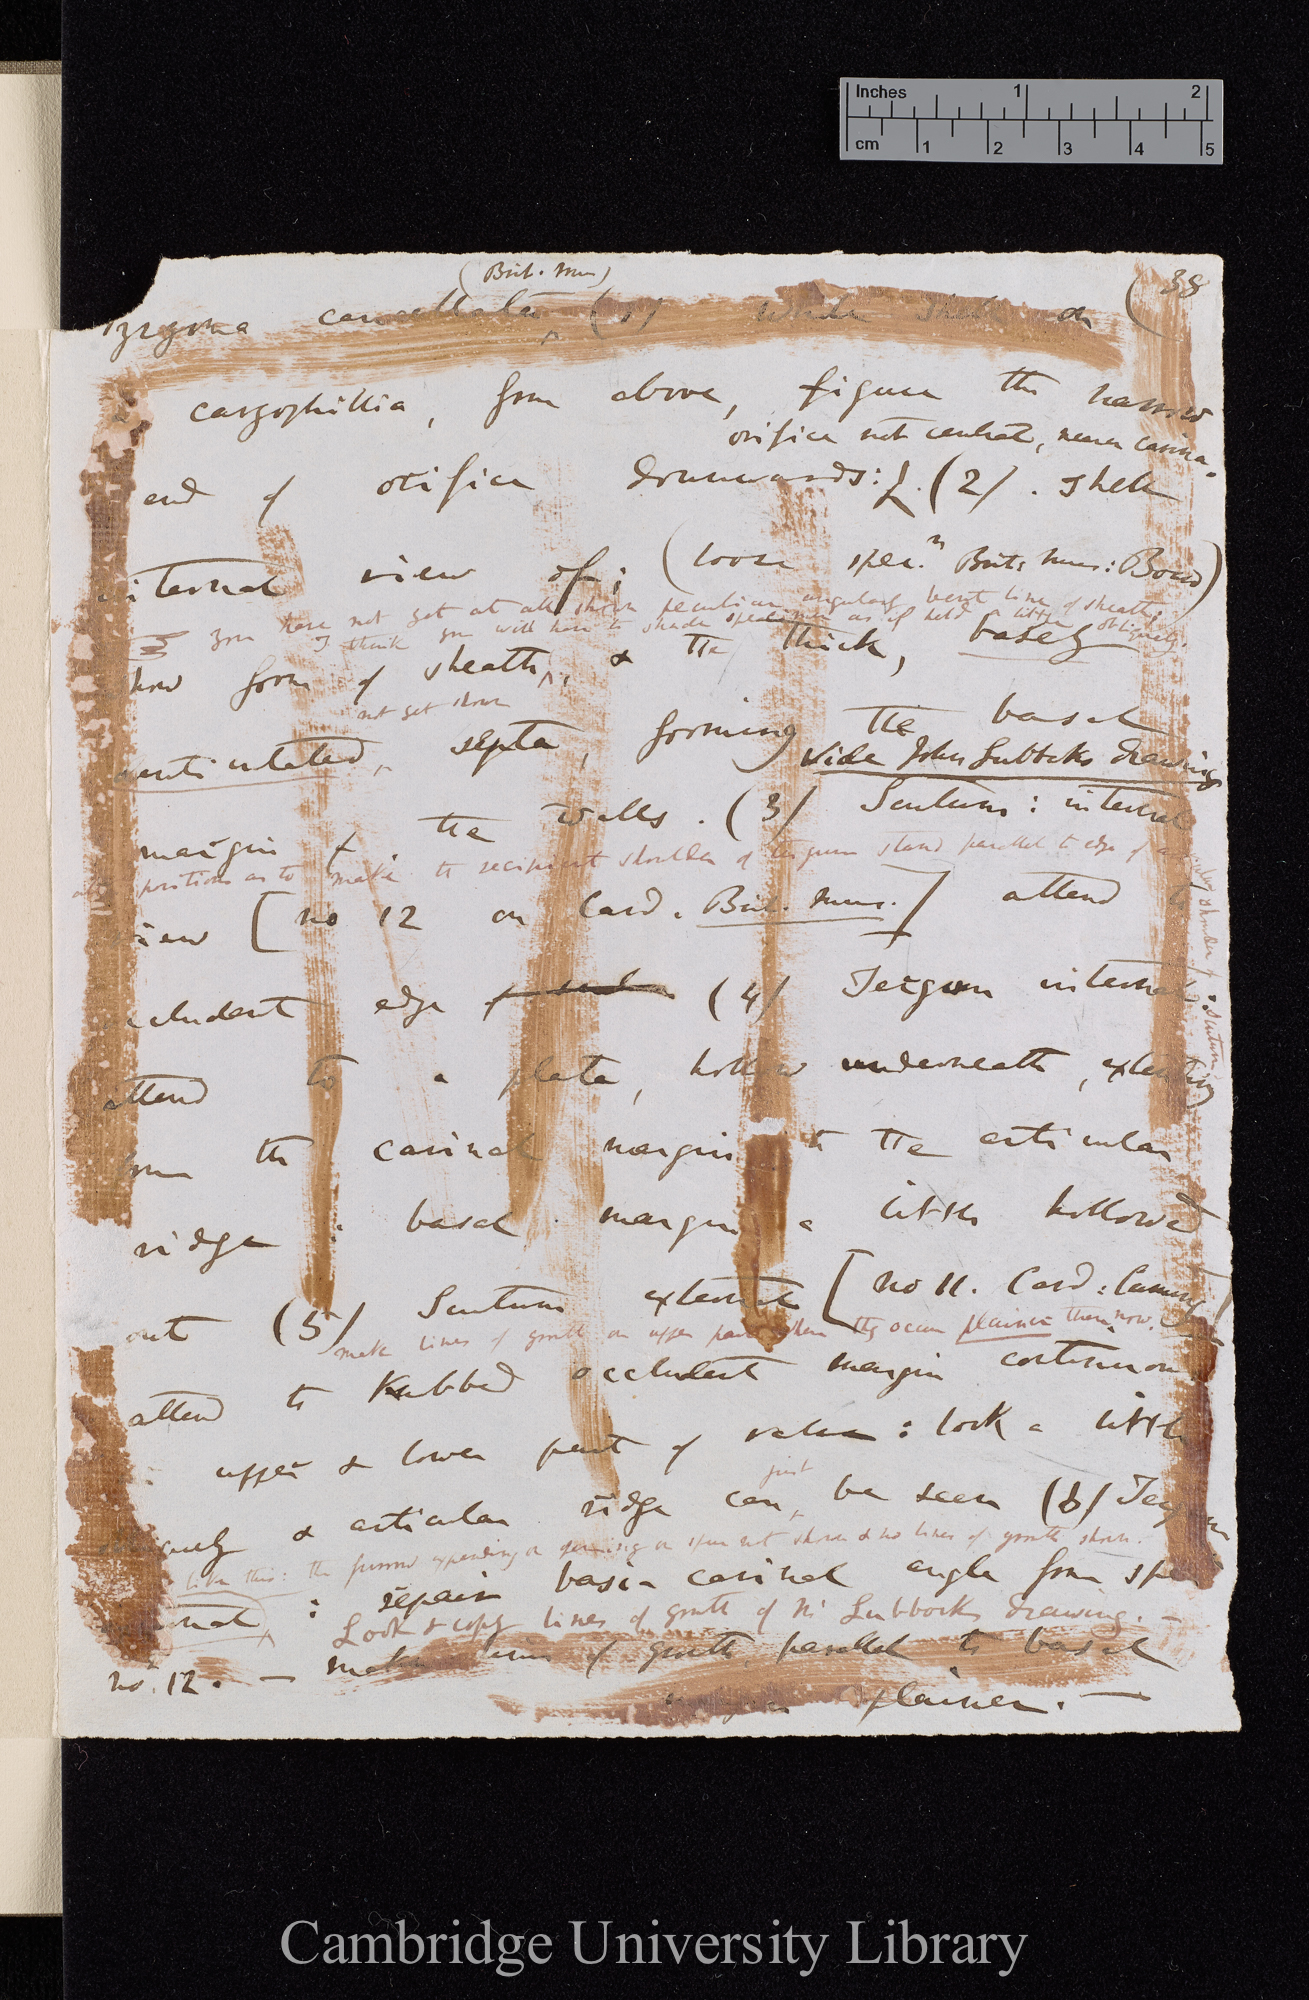 Inches 1 2
cm 1 2 3 4 5
(38
(Brit. Mus)
Pyrgoma cancellata (1) whole shell on
a caryophillia, from above, figure the narrow
orifice not central, nearer carina.
end of orifice downwards: (2). Shell
internal view of; (loose specn Brit: Mus: Box)
you have not got at all shown peculiar angularly bent line of sheath;
I think you will have to shade specimen as if held a little obliquely.
show form of sheath, & the thick, basely
not yet shown
denticulated, septa, forming the basal
Vide John Lubbocks drawings
margin of the walls. (3) Scutum: internal
positions as to make the recipient shoulder of tergum stand parallel to edge of
shoulder of scutum
view [no 12 on Card. Brit. Mus.] attend to
occludent edge (4) Tergum internal:
attend to a plate, hollow underneath, extending
from the carinal margin to the articular
ridge: basal margin a little hollowed
out (5) Scutum external [no 11. Card: Cuming]
make lines of growth on upper part where they occur plainer than now.
attend to Knobbed occludent margin continuous
upper & lower part of valve: look a little
just
& articular ridge can, be seen (6) Tergum
like this: the furrow depending or running on spur not shown & no lines of growth shown.
external: repair basi-carinal angle from specn
Look & copy lines of growth of Mr Lubbocks drawing. —
no. 12. — make lines of growth, parallel to basal
margin plainer. —
Cambridge University Library